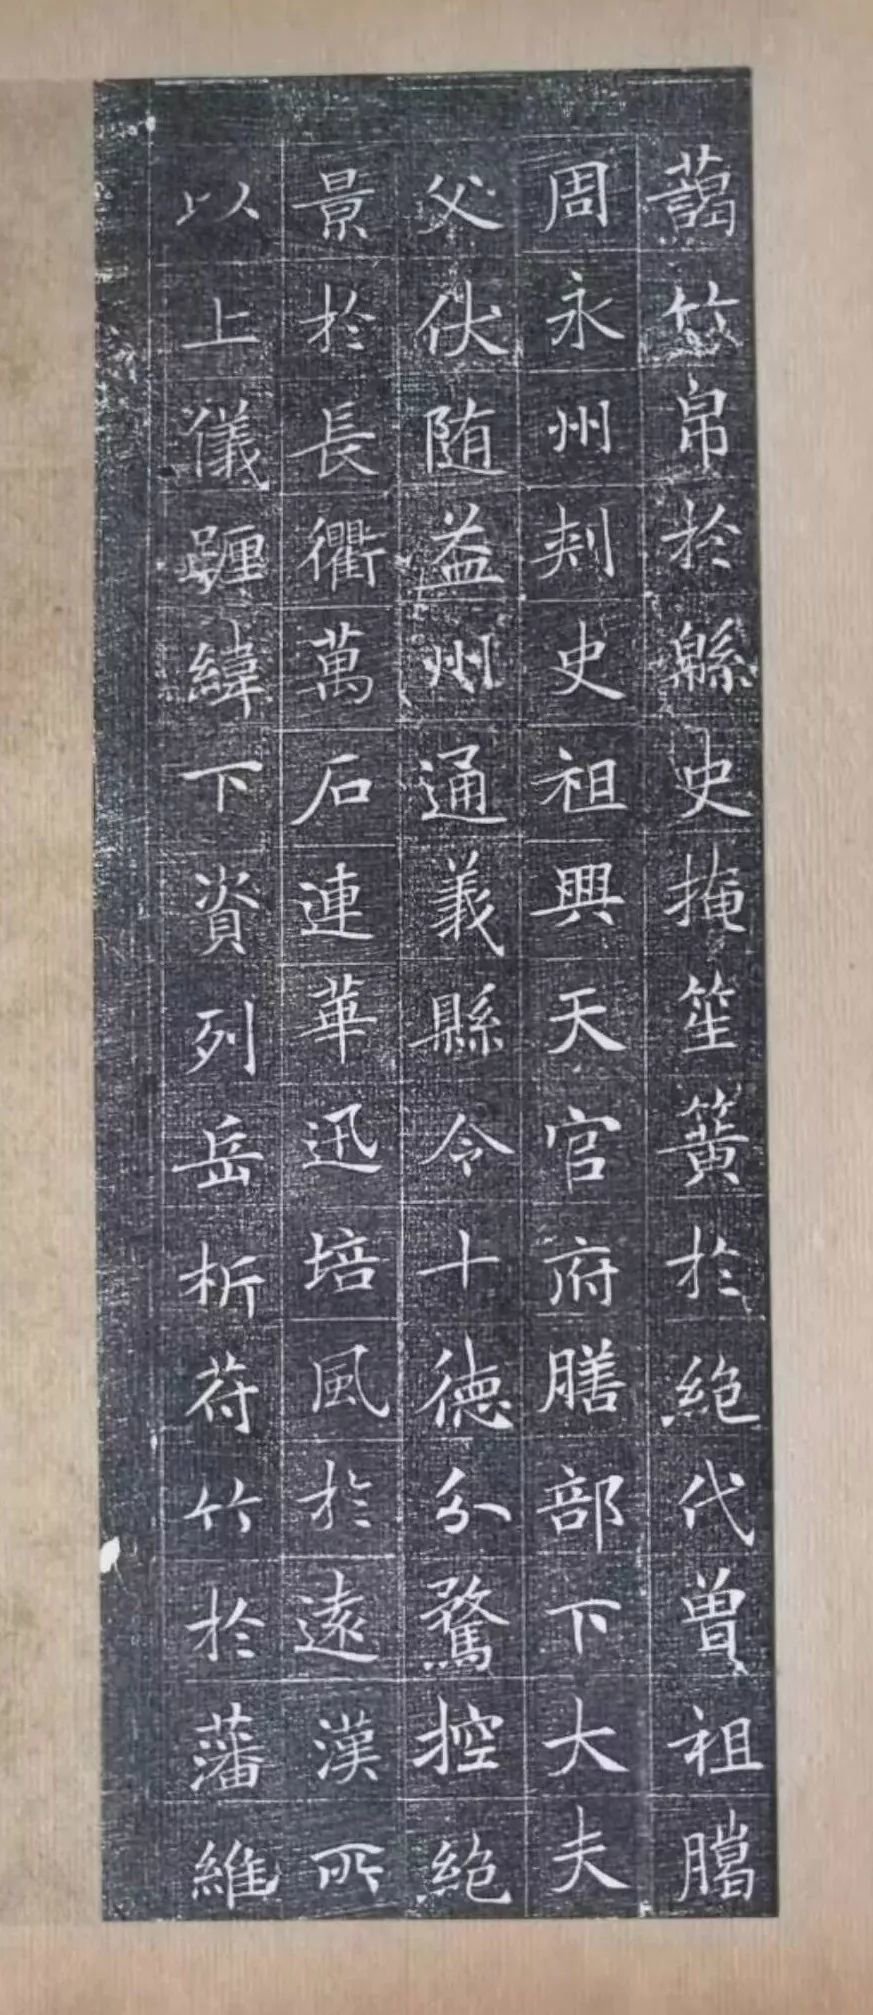 蔼竹帛於緜史掩笙簧於絶代曾祖騰
周永州刾史祖興天官府膳部下大夫
父伏随益州通義縣令十德分鶩控絶
景於長衢萬石連華迅培風於遠漢所
以上儀躔緯下資列岳析苻竹於藩維